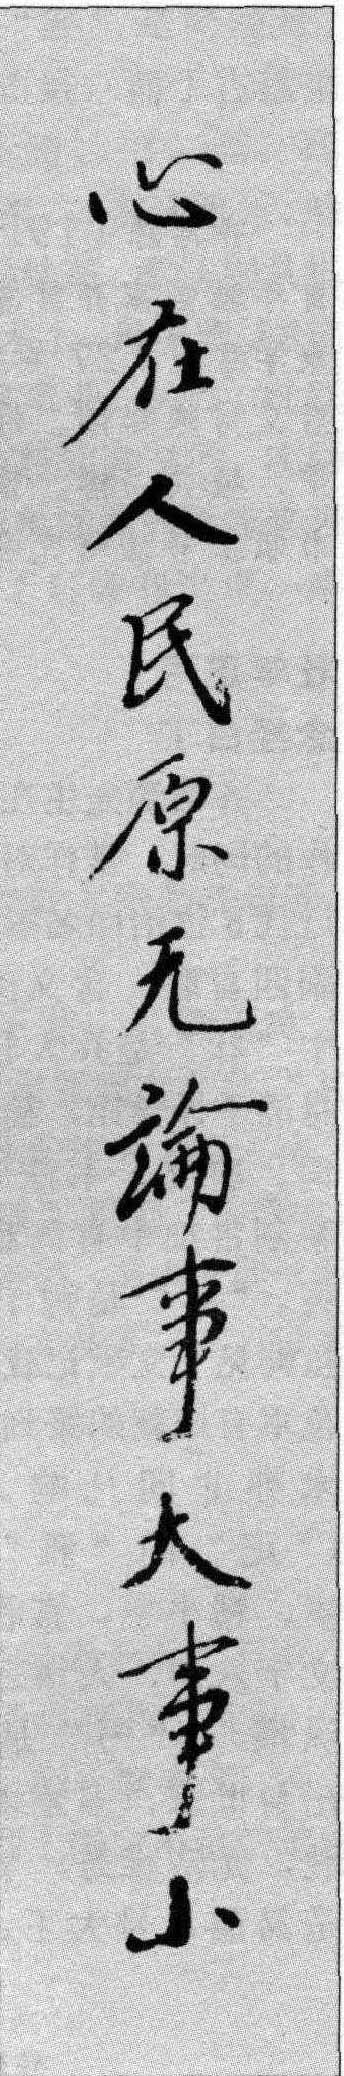 心在人民原无論事大事小